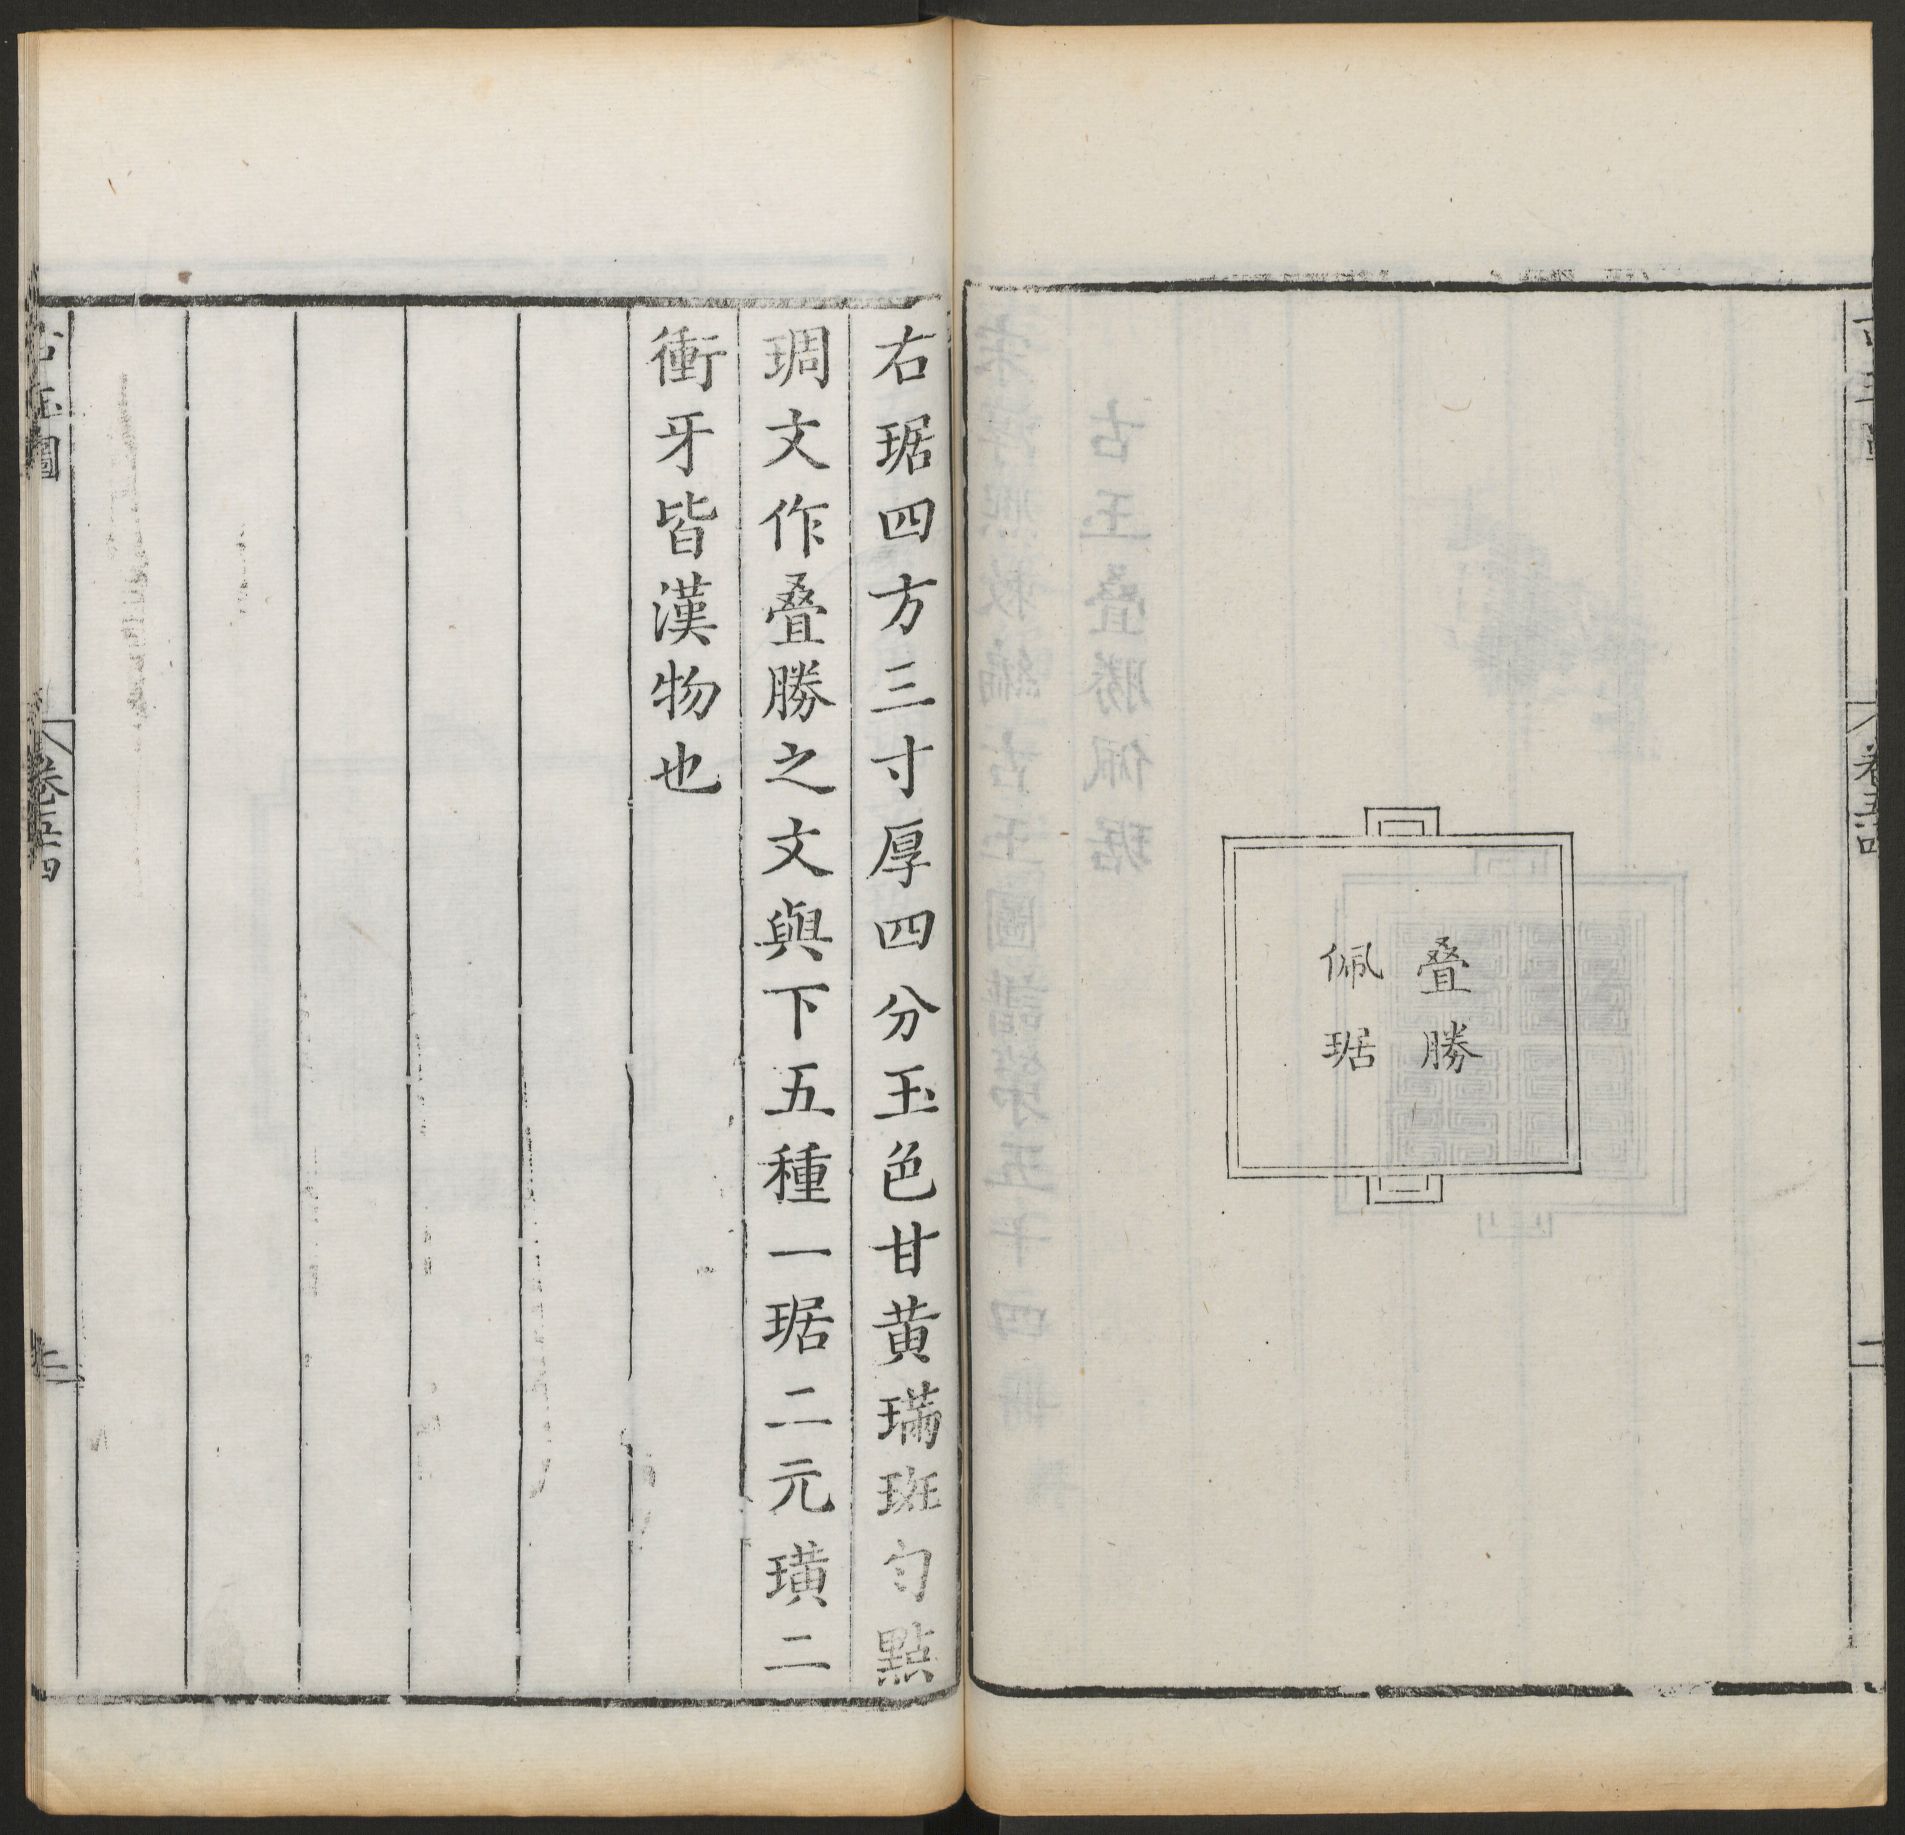 叠勝
佩琚
卷五十四
一
右琚四方三寸厚四分玉色甘黄璊斑勻點
琱文作叠勝之文與下五種一琚二元璜二
衝牙皆漢物也
古玉圖
卷五十四